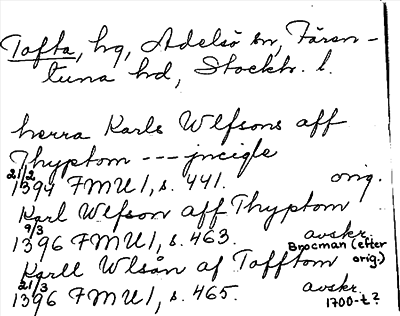 Tofta, hg, Adelsö sn, Fären-
tuna hd, Stockh. l.
herra Karls Wlfsons aff
Thyptom --- jncigle
21/2 1394 FMU 1, s. 441. orig.
Karl Wlfson aff Thyptom
9/3 1396 FMU 1, s. 463. avskr.
Brocman (efter orig.)
Karll Wlsån af Tofftom
21/3 1396 FMU 1, s. 465. avskr.
1700-t?